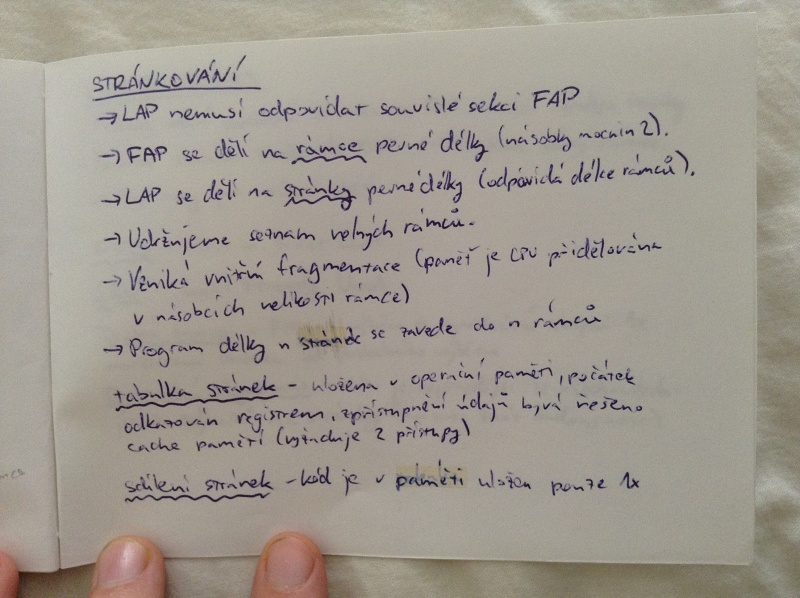 STRÁNKOVÁNÍ
→ LAP nemusí odpovídat souvislé sekci FAP
→ FAP se dělí na rámce pevné délky (násobky mocnin 2).
→ LAP se dělí na stránky pevné délky (odpovídá délce rámců).
→ Udržujeme seznam volných rámců.
→ Vzniká vnitřní fragmentace (paměť je CPU přidělována
v násobcích velikosti rámce)
→ Program délky n stránek se zavede do n rámců
tabulka stránek - uložena v operační paměti, počátek
odkazován registrem, zpřístupnění údajů bývá řešeno
cache pamětí (vyžaduje 2 přístupy)
sdílení stránek - kód je v paměti uložen pouze 1x